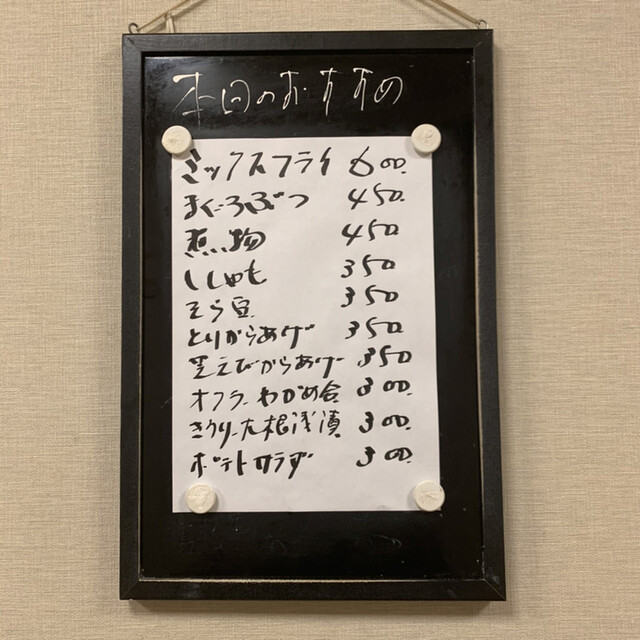 本日のおすすめ
ミックスフライ 600.
まぐろぶつ 450.
煮物 450
ししゃも 350
そら豆 350
とりからあげ 350
芝えびからあげ 350
オクラ、わかめ合 300.
きうり、大根浅漬 300.
ポテトサラダ 300.